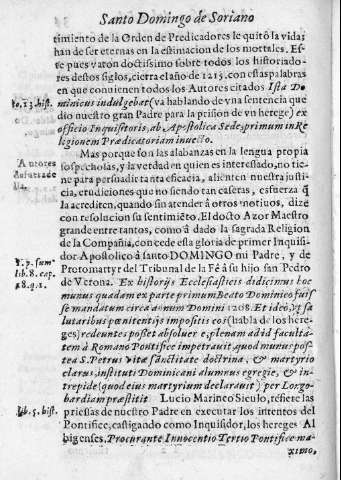 Santo Domingo de Soriano
timiento de la Orden de Predicadores le quitò la vida;
han de ser eternas en la estimacion de los mortales. Es-
te pues varon doctissimo sobre todos los historiado-
res destos siglos, cierra el año de 1215. con estas palabras
en que convienen todos los Autores citados Ista Do-
to. 13. hist.
minicus indulgebat (va hablando de vna sentencia que
diò nuestro gran Padre para la prisiòn de vn herege) ex
officio Inquisitoris, ab Apostolica Sede, primum in Re-
ligionem Prædicatoriam inuecto.
Mas porque son las alabanzas en la lengua propia
Autores
sospechosas, y la verdad en quien es interessado, no tie-
ne para persuadir tanta eficacia, alienten nuestra justi-
cia, erudiciones que no siendo tan caseras, esfuerza q̃
la acrediten, quando sin atender à otros motiuos, dize
con resolucion su sentimiẽto. El docto Azor Maestro
grande entre tantos, como à dado la sagrada Religion
de la Compañia, concede esta gloria de primer Inquisi-
dor Apostolico à santo DOMINGO mi Padre, y de
T. p. sum.
lib. 8. cap.
18. q. 1.
Protomartyr del Tribunal de la Fè à su hijo san Pedro
de Verona. Ex historijs Ecclesiasticis didicimus hoc
munus quadam ex parte primum Beato Dominico fuis
se mandatum circa annum Domini 1208. Et ideò, vt sa
lutaribus pœnitentijs impositis eos (habla de los here-
ges) redeuntes posset absoluer e, plenam adid faculta-
tem à Romano Pontifice impetrauit quod munus pos-
tea S. Petrus vitæ sanctitate doctrina, & martyrio
clarus, instituti Dominicani alumnus egregie, & in-
trepide (quod eius martyrium declarauit) per Longo-
bardiam præstitit Lucio Marineo Siculo, refiere las
lib. 5. hist.
priessas de nuestro Padre en executar los intentos del
Pontifice, castigando como Inquisidor, los hereges Al
bigenses. Procurante Innocentio Tertio Pontifice ma-
ximo,